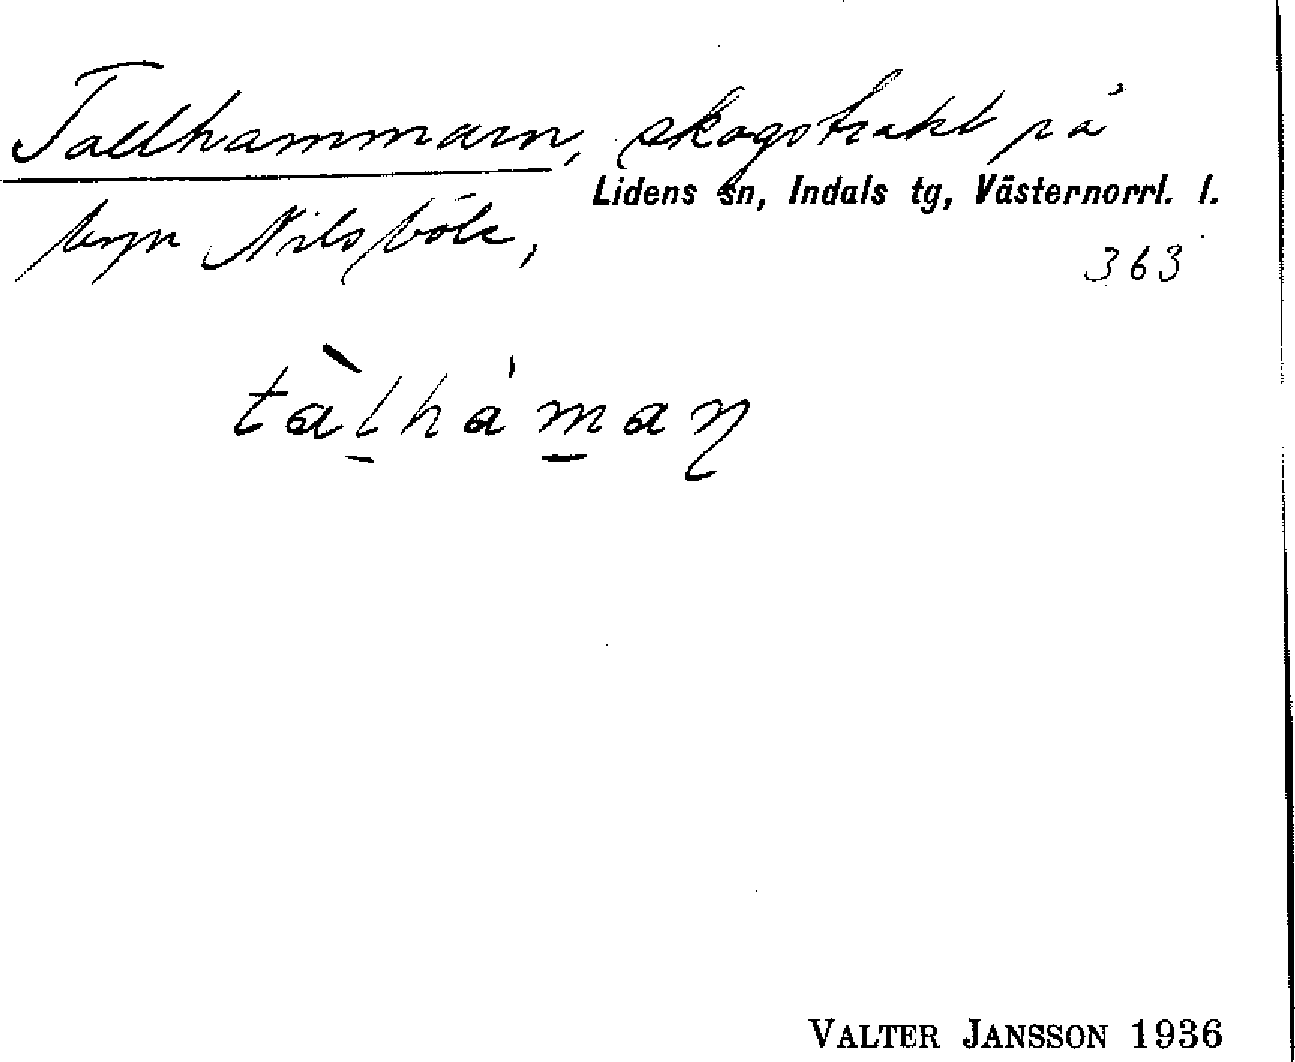 Tallhammarn, skogstrakt på
Lidens sn, Indals tg, Västernorrl. l.
byn Nilsböle,
363
tàl̠hám̠aŋ
VALTER JANSSON 1936